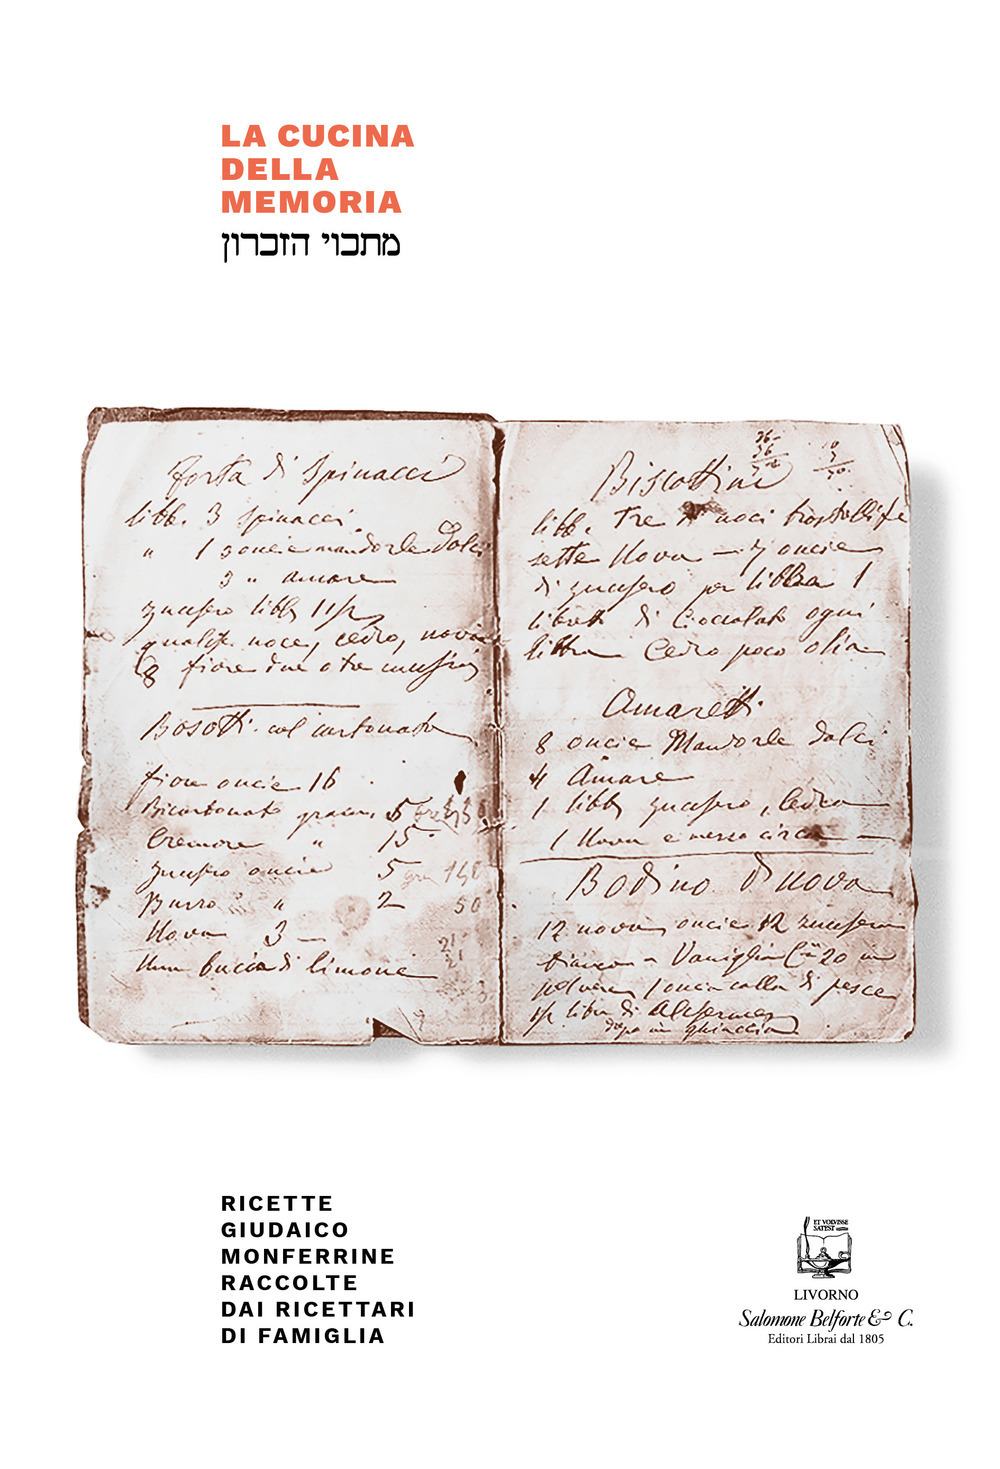 LA CUCINA
DELLA
MEMORIA
מתכוי הזכרון
Torta di Spinacci
libb. 3 Spinacci
" 1 3 oncie mandorle dolci
3 " amare
zucchero libb 1 1/2
qualche noce, cedro, nova
8 fiore due o tre
Bosotti col
fiore oncie 16
Bicarbonato grammi 5
Cremore " 15
zucchero oncie 5
Burro " 2 50
Nova 3 —
Una buccia di limone
36
36
Biscottini
libb. Tre noci
sette Nova — 7 oncie
di zucchero per libbra 1
di Cioccolato ogni
libbra Cedro poco olio
Amaretti
8 oncie Mandorle dolci
4 Amare
1 libb zucchero, Cedro
1 Nova e mezzo circa —
Bodino di nova
12 nova oncie 12 zucchero
bianco Vaniglia 20 in
polvere 1 oncia colla di pesce
1/2 libra di Alchermes
dopo in ghiaccio
RICETTE
GIUDAICO
MONFERRINE
RACCOLTE
DAI RICETTARI
DI FAMIGLIA
ET VOLVISSE
SATEST
LIVORNO
Salomone Belforte & C.
Editori Librai dal 1805